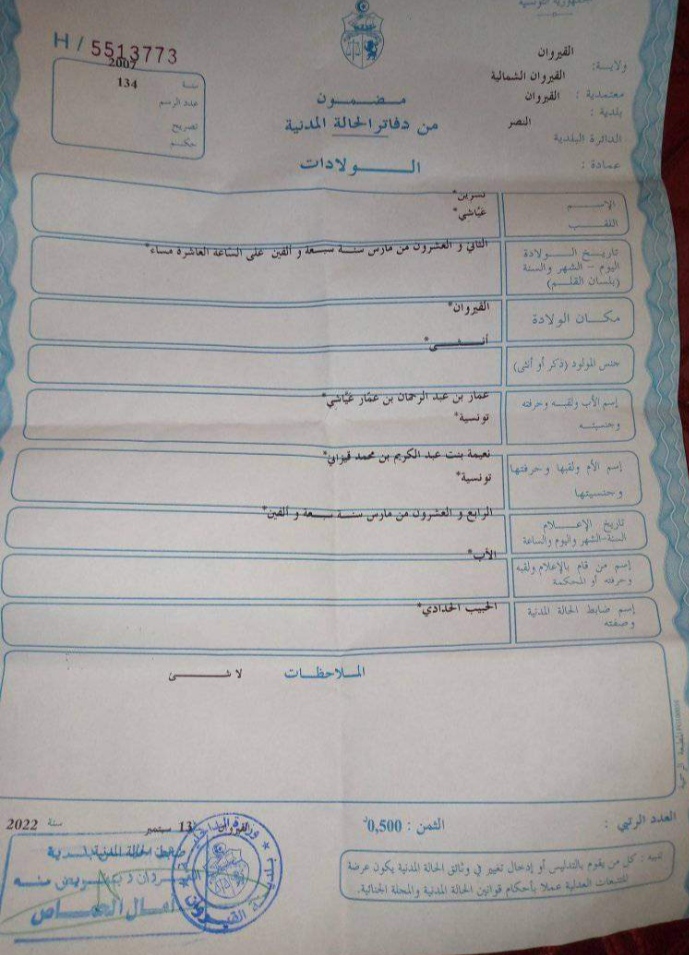 H / 5513773
2007
سنة
134
عدد الرسم
تصريح
حكم
القيروان
ولاية:
القيروان الشمالية
معتمدية : القيروان
بلدية :
النصر
الدائرة البلدية
عمادة :
مضمون
من دفاتر الحالة المدنية
الولادات
الإسم نسرين*
اللقب عيّاشي*
تاريخ الولادة الثاني و العشرون من مارس سنة سبعة و ألفين على الساعة العاشرة مساء*
اليوم - الشهر والسنة
(بلسان القلم)
مكان الولادة القيروان*
جنس المولود (ذكر أو أنثى) أنثى*
إسم الأب ولقبه وحرفته عمار بن عبد الرحمان بن عمّار عيّاشي*
وجنسيته تونسية*
إسم الأم ولقبها وحرفتها نعيمة بنت عبد الكريم بن محمد قيزاني*
وجنسيتها تونسية*
تاريخ الإعلام الرابع و العشرون من مارس سنة سبعة و ألفين*
السنة-الشهر واليوم والساعة
إسم من قام بالإعلام ولقبه الأب*
وحرفته أو المحكمة
إسم ضابط الحالة المدنية الحبيب الحدادي*
وصفته
الملاحظات لا شئ
العدد الرتبي :
الثمن : 0,500د
القيروان 13 سبتمبر سنة 2022
تنبيه : كل من يقوم بالتدليس أو إدخال تغيير في وثائق الحالة المدنية يكون عرضة
للتتبعات العدلية عملا بأحكام قوانين الحالة المدنية والمجلة الجنائية.
ضابط الحالة المدنية